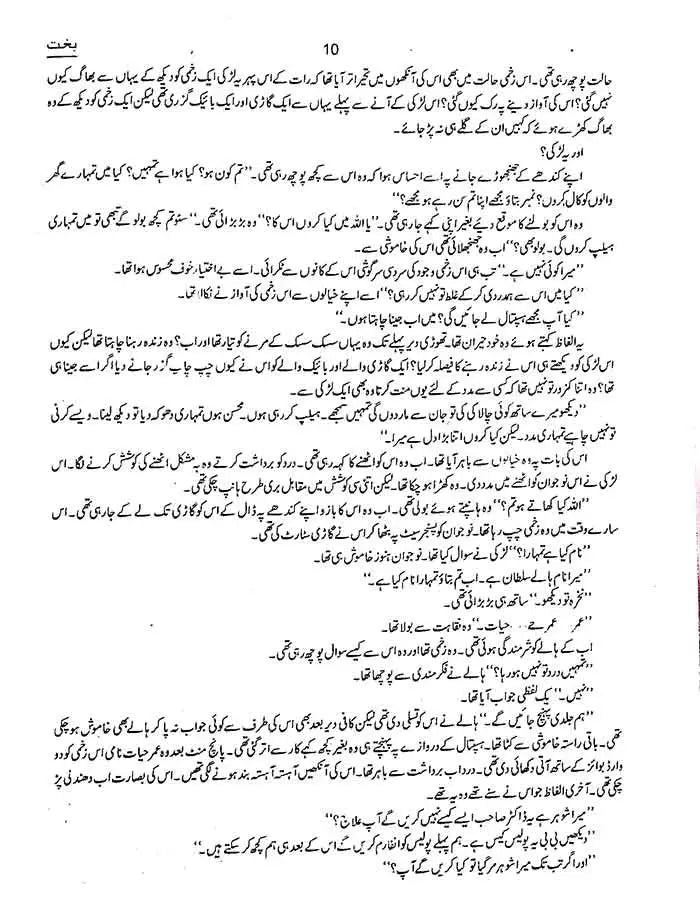 بخت
10
حالت پوچھ رہی تھی۔ اس زخمی حالت میں بھی اس کی آنکھوں میں تحیر اتر آیا تھا کہ رات کے اس پہر یہ لڑکی ایک زخمی کو دیکھ کے یہاں سے بھاگ کیوں
نہیں گئی؟ اس کی آواز دینے پہ رک کیوں گئی؟ اس لڑکی کے آنے سے پہلے یہاں سے ایک گاڑی اور ایک بائیک گزری تھی لیکن ایک زخمی کو دیکھ کے وہ
بھاگ کھڑے ہوئے کہ کہیں ان کے گلے ہی نہ پڑ جائے۔
اور یہ لڑکی؟
اپنے کندھے کے جھنجھوڑے جانے پہ اسے احساس ہوا کہ وہ اس سے کچھ پوچھ رہی تھی۔ ’’تم کون ہو؟ کیا ہوا ہے تمہیں؟ کیا میں تمہارے گھر
والوں کو کال کروں؟ نمبر بتاؤ مجھے اپنا تم سن رہے ہو مجھے؟‘‘
وہ اس کو بولنے کا موقع دیئے بغیر اپنی کہے جا رہی تھی۔ ’’یا اللہ میں کیا کروں اس کا؟‘‘ وہ بڑبڑائی تھی۔ ’’سنو تم کچھ بولو گے تبھی تو میں تمہاری
ہیلپ کروں گی۔ بولو بھی؟‘‘ اب وہ جھنجھلائی تھی اس کی خاموشی سے۔
’’میرا کوئی نہیں ہے۔‘‘ تب ہی اس زخمی وجود کی سرد سی سرگوشی اس کے کانوں سے ٹکرائی۔ اسے بے اختیار خوف محسوس ہوا تھا۔
’’کیا میں اس سے ہمدردی کر کے غلط تو نہیں کر رہی؟‘‘ اسے اپنے خیالوں سے اس زخمی کی آواز نے نکالا تھا۔
’’کیا آپ مجھے ہسپتال لے جائیں گی؟ میں اب جینا چاہتا ہوں۔‘‘
یہ الفاظ کہتے ہوئے وہ خود حیران تھا۔ تھوڑی دیر پہلے تک وہ یہاں سسک سسک کے مرنے کو تیار تھا اور اب؟ وہ زندہ رہنا چاہتا تھا لیکن کیوں
اس لڑکی کو دیکھتے ہی اس نے زندہ رہنے کا فیصلہ کر لیا؟ ایک گاڑی والے اور بائیک والے کو اس نے کیوں چپ چاپ گزر جانے دیا اگر اسے جینا ہی
تھا؟ وہ اتنا کمزور تو نہیں تھا کہ کسی سے مدد کے لئے یوں منت کرتا وہ بھی ایک لڑکی سے۔
’’دیکھو میرے ساتھ کوئی چالاکی کی تو جان سے مار دوں گی تمہیں سمجھے۔ ہیلپ کر رہی ہوں۔ محسن ہوں تمہاری دھوکہ دیا تو دیکھ لینا۔ ویسے کرنی
تو نہیں چاہیے تمہاری مدد۔ لیکن کیا کروں اتنا بڑا دل ہے میرا۔‘‘
اس کی بات پہ وہ خیالوں سے باہر آیا تھا۔ اب وہ اس کو اٹھنے کا کہہ رہی تھی۔ درد کو برداشت کرتے وہ بہ مشکل اٹھنے کی کوشش کرنے لگا۔ اس
لڑکی نے اس نوجوان کو اٹھنے میں مدد دی۔ وہ کھڑا ہو چکا تھا۔ لیکن اتنی سی کوشش میں مقابل بری طرح ہانپ چکی تھی۔
’’اللہ کیا کھاتے ہو تم؟‘‘ وہ ہانپتے ہوئے بولی تھی۔ اب وہ اس کا بازو اپنے کندھے پہ ڈال کے اس کو گاڑی تک لے کے جا رہی تھی۔ اس
سارے وقت میں وہ زخمی چپ رہا تھا۔ نوجوان کو پسنجر سیٹ پہ بٹھا کر اس نے گاڑی سٹارٹ کی تھی۔
’’نام کیا ہے تمہارا؟‘‘ لڑکی نے سوال کیا تھا۔ نوجوان ہنوز خاموش ہی تھا۔
’’میرا نام ہالے سلطان ہے۔ اب تم بتاؤ تمہارا نام کیا ہے۔‘‘
’’نخرہ تو دیکھو۔‘‘ ساتھ ہی بڑبڑائی تھی۔
’’عمر عمر حے۔۔۔ حیات۔‘‘ وہ نقاہت سے بولا تھا۔
اب کے ہالے کو شرمندگی ہوئی تھی۔ وہ زخمی تھا اور وہ اس سے کیسے سوال پوچھ رہی تھی۔
’’تمہیں درد تو نہیں ہو رہا؟‘‘ ہالے نے فکرمندی سے پوچھا تھا۔
’’نہیں۔‘‘ یک لفظی جواب آیا تھا۔
’’ہم جلدی پہنچ جائیں گے۔‘‘ ہالے نے اس کو تسلی دی تھی لیکن کافی دیر بعد بھی اس کی طرف سے کوئی جواب نہ پا کر ہالے بھی خاموش ہو چکی
تھی۔ باقی راستہ خاموشی سے کٹا تھا۔ ہسپتال کے دروازے پہ پہنچتے ہی وہ بغیر کچھ کہے کار سے اتر گئی تھی۔ پانچ منٹ بعد وہ عمر حیات نامی اس زخمی کو دو
وارڈ بوائز کے ساتھ آتی دکھائی دی تھی۔ درد اب برداشت سے باہر تھا۔ اس کی آنکھیں آہستہ آہستہ بند ہونے لگی تھیں۔ اس کی بصارت اب دھندلی پڑ
چکی تھی۔ آخری الفاظ جو اس نے سنے تھے وہ یہ تھے۔
’’میرا شوہر ہے یہ ڈاکٹر صاحب ایسے کیسے نہیں کریں گے آپ علاج؟‘‘
’’دیکھیں بی بی یہ پولیس کیس ہے۔ ہم پہلے پولیس کو انفارم کریں گے اس کے بعد ہی ہم کچھ کر سکتے ہیں۔‘‘
’’اور اگر تب تک میرا شوہر مر گیا تو کیا کریں گے آپ؟‘‘